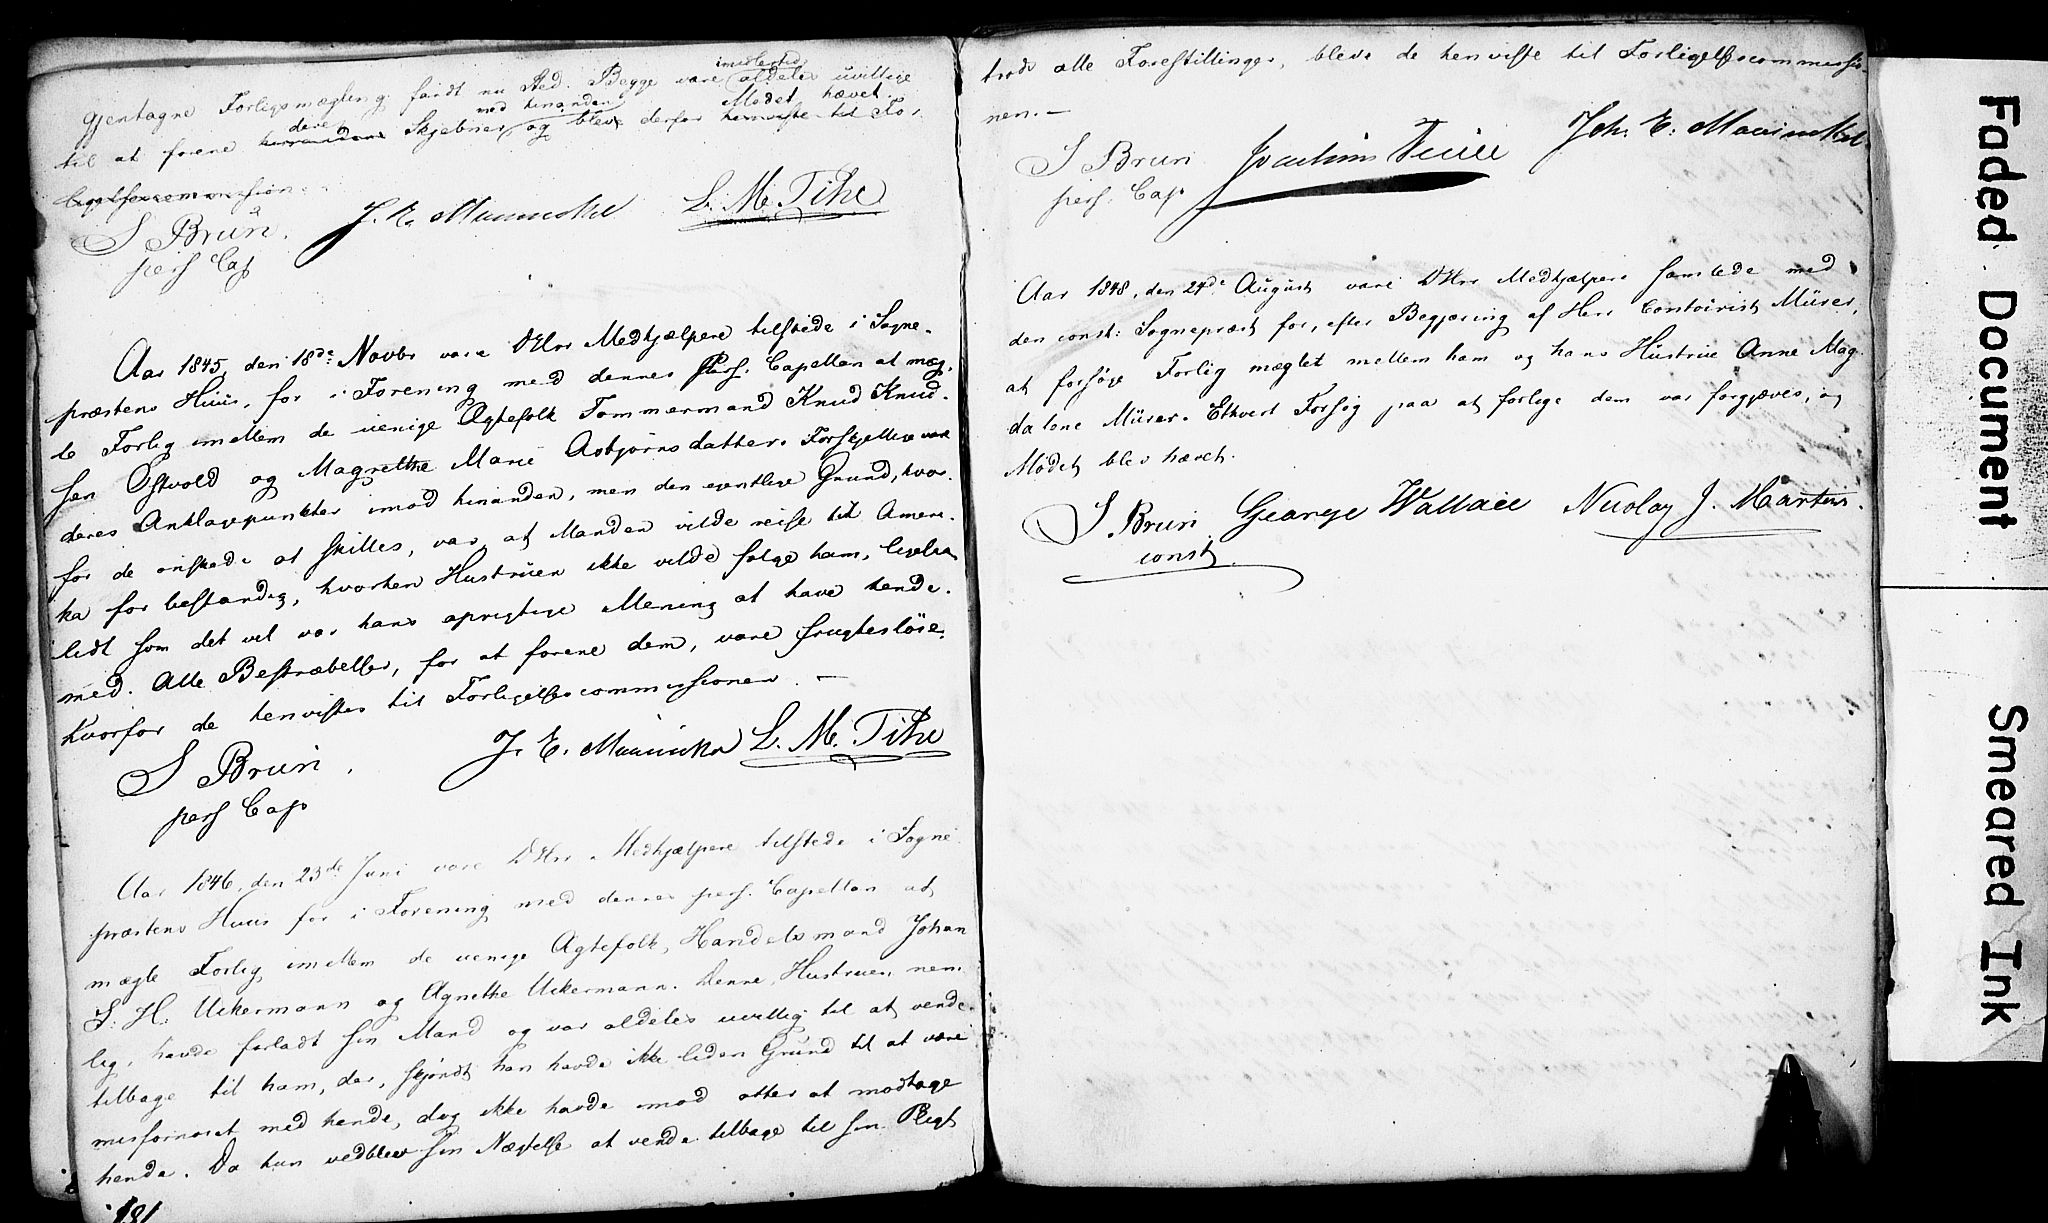 imidlertid
gjentagne Forligsmægling fandt nu Sted. Begge vare aldeles uvillige
med hinanden Mødet hævet.
til at forene deres Skjebner og blev derfor henviste til For-
ligelsescommission
S Brun. J. E. Mariniskel L. M. Tihe
pers Cap
Aar 1845, den 18de Novbr vare DHrr Medhjælpere tilstede i Sogne-
præstens Huus, for i Forening med dennes Pers. Capellan at mæg-
le Forlig imellem de uenige Ægtefolk Tømmermand Knud Knud-
sen Østvold og Magrethe Marie Asbjørnsdatter. Forskjellige vare
deres Anklagepunkter imod hinanden, men den egentlige Grund, hvor-
for de ønskede at skilles, var, at Manden vilde reise til Amere-
ka for bestandig, hvorhen Hustruen ikke vilde følge ham, ligesaa
lidt som det vel var hans oprigtige Mening at have hende
med. Alle Bestræbelser, for at forene dem, vare frugtesløse,
hvorfor de henvistes til Forligelsescommissionen. —
S Brun. J. E. L. M. Tihe
pers Cap
Aar 1846, den 23de Juni vare DHrr Medhjælpere tilstede i Sogne-
præstens Huus for i Forening med dennes pers. Capellan at
mægle Forlig imellem de uenige Ægtefolk, Handelsmand Johan
S: H: Uckermann og Agnethe Uckermann. Denne, Hustruen nem-
lig, havde forladt sin Mand og var aldeles uvillig til at vende
tilbage til ham, der, skjøndt han havde ikke liden Grund til at være
misfornøiet med hende, dog ikke havde imod atter at modtage
hende. Da hun vedblev sin Nægtelse at vende tilbage til sin Pligt
181
trods alle Forestillinger, bleve de henviste til Forligelsescommissio-
nen. —
S Brun Joachim Joh. E.
pers. Cap
Aar 1848, den 24de August vare DHrr Medhjælpere samlede med
den const: Sognepræst for, efter Begjæring af Herr Contoirist Mürer,
at forsøge Forlig mæglet mellem ham og hans Hustrue Anne Mag-
dalene Mürer. Ethvert Forsøg paa at forlige dem var forgjæves, og
Mødet blev hævet.
S. Brun George Wallace Nicolay J. Martens.
const.
Faded Document
Smeared Ink